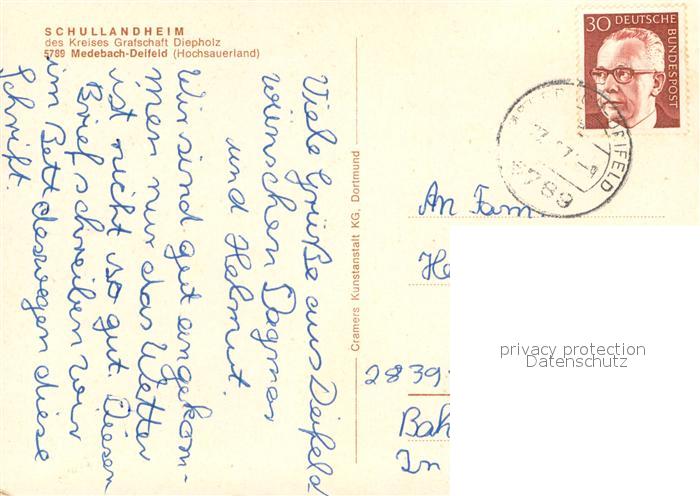 SCHULLANDHEIM
des Kreises Grafschaft Diepholz
5789 Medebach-Deifeld (Hochsauerland)
Viele Grüße aus Deifeld
wünschen Dagmar
und Helmut.
Wir sind gut angekom-
men nur das Wetter
ist nicht so gut. Diesen
Brief schreiben wir
im Bett deswegen diese
Schrift.
Cramers Kunstanstalt KG, Dortmund
30 DEUTSCHE
BUNDESPOST
DEIFELD
5789
An Fam.
He
2839
Bah
In
privacy protection
Datenschutz